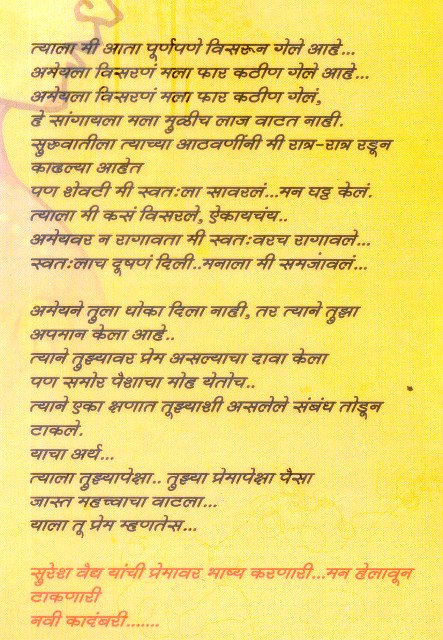 त्याला मी आता पूर्णपणे विसरून गेले आहे...
अमेयला विसरणं मला फार कठीण गेले आहे...
अमेयला विसरणं मला फार कठीण गेलं,
हे सांगायला मला मुळीच लाज वाटत नाही.
सुरुवातीला त्याच्या आठवर्णीनी मी रात्र-रात्र रडून
काढल्या आहेत
पण शेवटी मी स्वतःला सावरलं...मन घट्ट केलं.
त्याला मी कसं विसरले, ऐकायचंय..
अमेयवर न रागावता मी स्वतःवरच रागावले...
स्वतःलाच दूषणं दिली..मनाला मी समजांवलं...
अमेयने तुला धोका दिला नाही, तर त्याने तुझा
अपमान केला आहे..
त्याने तुझ्यावर प्रेम असल्याचा दावा केला
पण समोर पैशाचा मोह येतोच..
त्याने एका क्षणात तूझ्याशी असलेले संबंध तोडून
टाकले.
याचा अर्थ...
त्याला तुझ्यापेक्षा.. तुझ्या प्रेमापेक्षा पैसा
जास्त महच्वाचा वाटला...
याला तू प्रेम म्हणतेस...
सुरेश वैद्य यांची प्रेमावर भाष्य करणारी...मन हेलावून
टाकणारी
नवी कादंबरी.......